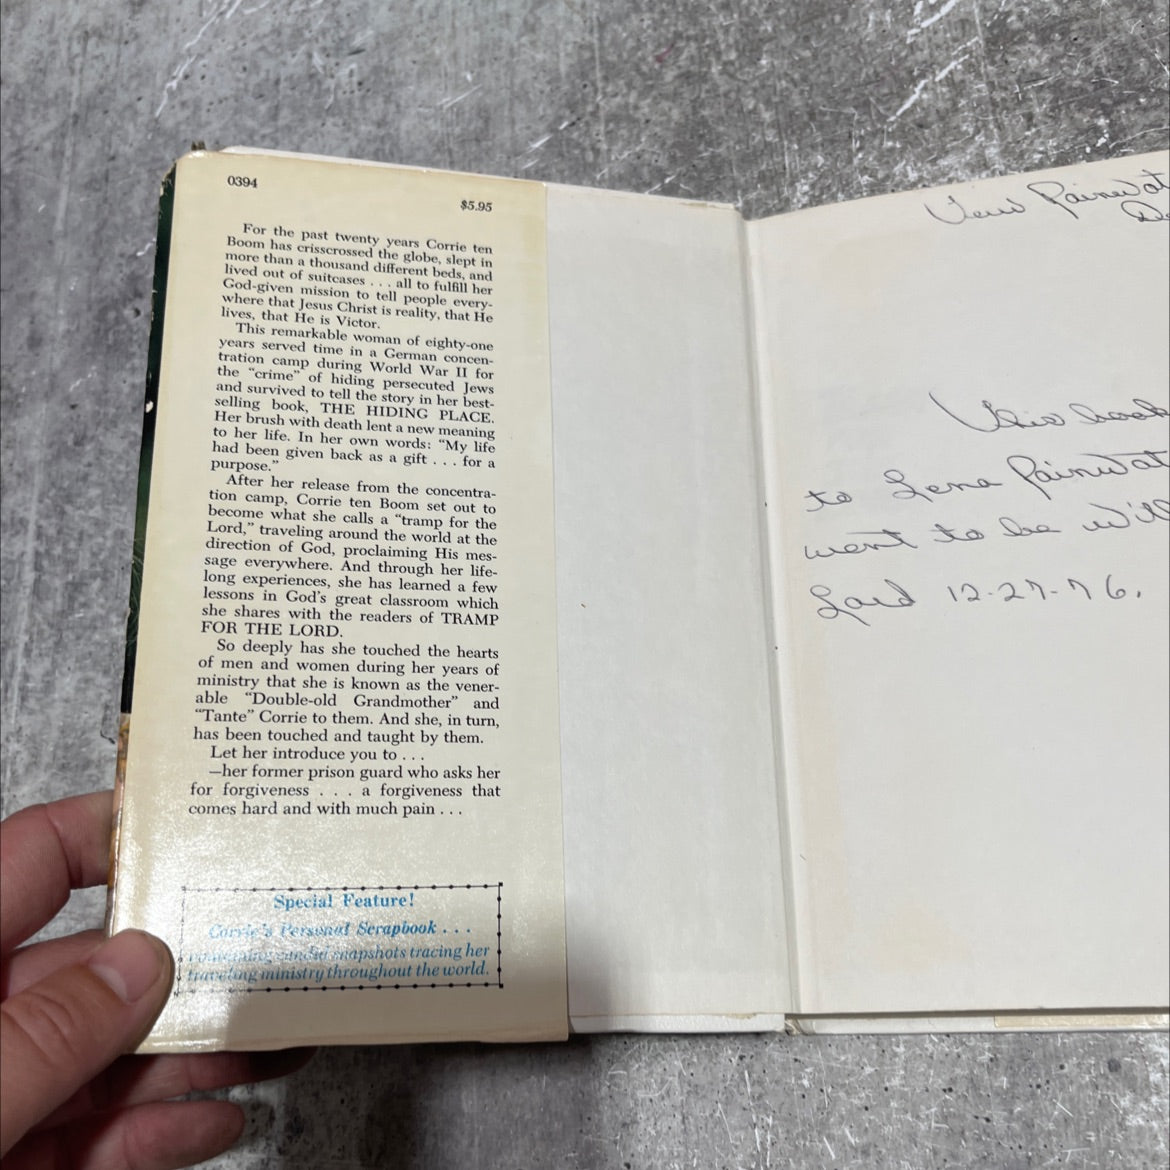 0394
$5.95
For the past twenty years Corrie ten
Boom has crisscrossed the globe, slept in
more than a thousand different beds, and
lived out of suitcases . . . all to fulfill her
God-given mission to tell people every-
where that Jesus Christ is reality, that He
lives, that He is Victor.
This remarkable woman of eighty-one
years served time in a German concen-
tration camp during World War II for
the "crime" of hiding persecuted Jews
and survived to tell the story in her best-
selling book, THE HIDING PLACE.
Her brush with death lent a new meaning
to her life. In her own words: "My life
had been given back as a gift . . . for a
purpose."
After her release from the concentra-
tion camp, Corrie ten Boom set out to
become what she calls a "tramp for the
Lord," traveling around the world at the
direction of God, proclaiming His mes-
sage everywhere. And through her life-
long experiences, she has learned a few
lessons in God's great classroom which
she shares with the readers of TRAMP
FOR THE LORD.
So deeply has she touched the hearts
of men and women during her years of
ministry that she is known as the vener-
able "Double-old Grandmother" and
"Tante" Corrie to them. And she, in turn,
has been touched and taught by them.
Let her introduce you to . . .
—her former prison guard who asks her
for forgiveness . . . a forgiveness that
comes hard and with much pain . . .
Special Feature!
Corrie's Personal Scrapbook . . .
containing candid snapshots tracing her
traveling ministry throughout the world.
This book
to Lena
went to be with
Lord 12-27-76.